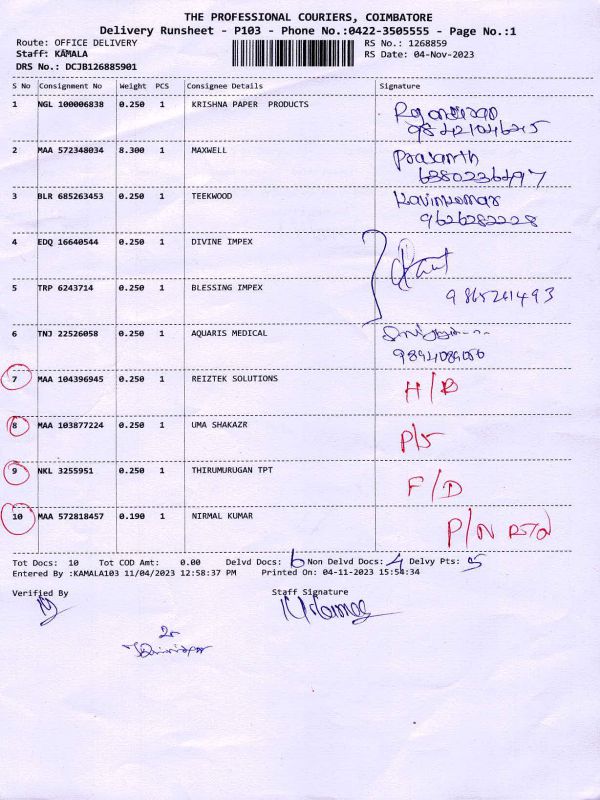 THE PROFESSIONAL COURIERS, COIMBATORE
Delivery Runsheet - P103 - Phone No.:0422-3505555 - Page No.:1
Route: OFFICE DELIVERY RS No.: 1268859
Staff: KAMALA RS Date: 04-Nov-2023
DRS No.: DCJB126885901
S No Consignment No Weight PCS Consignee Details Signature
1 NGL 100006838 0.250 1 KRISHNA PAPER PRODUCTS
2 MAA 572348034 8.300 1 MAXWELL Prasanth
6380236497
3 BLR 685263453 0.250 1 TEEKWOOD Kavinkumar
9626282228
4 EDQ 16640544 0.250 1 DIVINE IMPEX
5 TRP 6243714 0.250 1 BLESSING IMPEX
9865261493
6 TNJ 22526058 0.250 1 AQUARIS MEDICAL
7 MAA 104396945 0.250 1 REIZTEK SOLUTIONS H/B
8 MAA 103877224 0.250 1 UMA SHAKAZR P/S
9 NKL 3255951 0.250 1 THIRUMURUGAN TPT F/D
10 MAA 572818457 0.190 1 NIRMAL KUMAR P/N
Tot Docs: 10 Tot COD Amt: 0.00 Delvd Docs: 6 Non Delvd Docs: 4 Delvy Pts: 5
Entered By :KAMALA103 11/04/2023 12:58:37 PM Printed On: 04-11-2023 15:54:34
Verified By Staff Signature